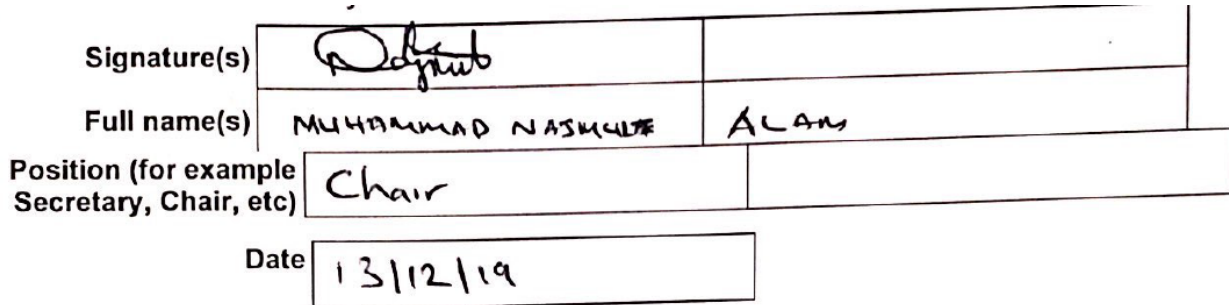 Signature(s)
Full name(s) MUHAMMAD ALAM
Position (for example
Secretary, Chair, etc) Chair
Date 13/12/19